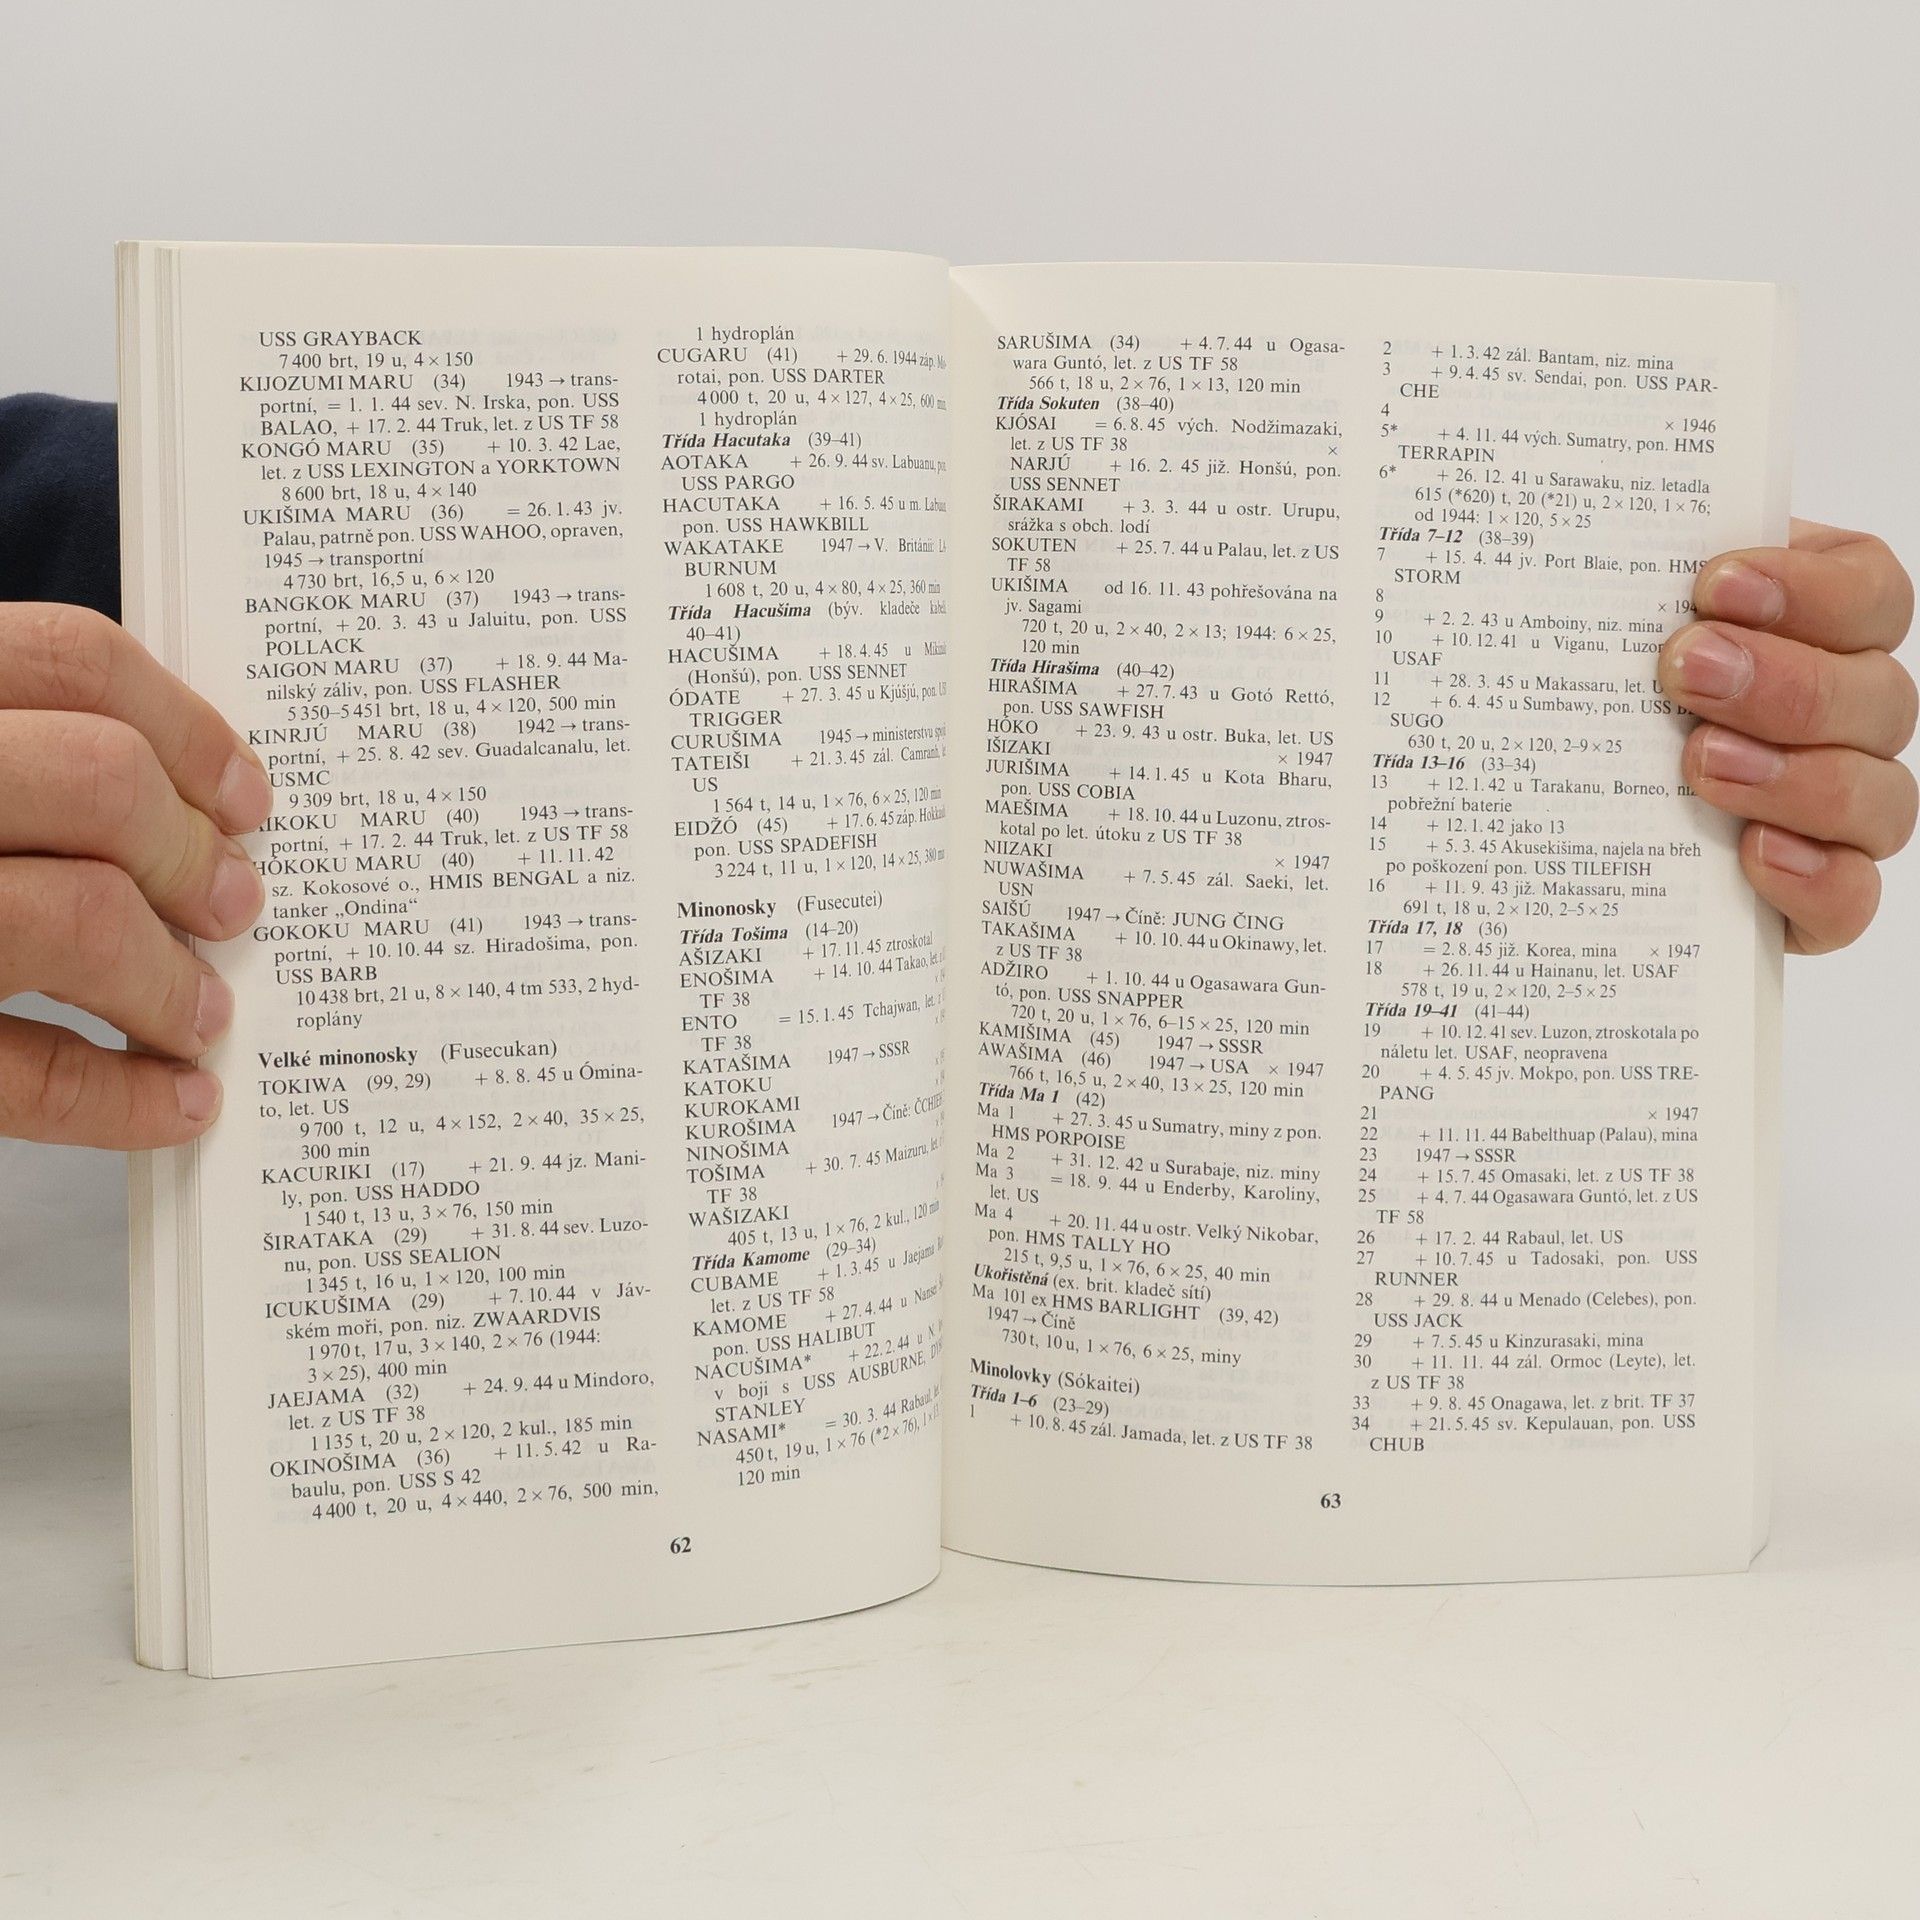 USS GRAYBACK
7 400 brt, 19 u, 4 × 150
KIJOZUMI MARU (34) 1943 → trans-
portní, = 1. 1. 44 sev. N. Irska, pon. USS
BALAO, + 17. 2. 44 Truk, let. z US TF 58
KONGÓ MARU (35) + 10. 3. 42 Lae,
let. z USS LEXINGTON a YORKTOWN
8 600 brt, 18 u, 4 × 140
UKIŠIMA MARU (36) = 26. 1. 43 jv.
Palau, patrně pon. USS WAHOO, opraven,
1945 → transportní
4 730 brt, 16,5 u, 6 × 120
BANGKOK MARU (37) 1943 → trans-
portní, + 20. 3. 43 u Jaluitu, pon. USS
POLLACK
SAIGON MARU (37) + 18. 9. 44 Ma-
nilský záliv, pon. USS FLASHER
5 350–5 451 brt, 18 u, 4 × 120, 500 min
KINRJÚ MARU (38) 1942 → trans-
portní, + 25. 8. 42 sev. Guadalcanalu, let.
USMC
9 309 brt, 18 u, 4 × 150
IKOKU MARU (40) 1943 → trans-
portní, + 17. 2. 44 Truk, let. z US TF 58
HÓKOKU MARU (40) + 11. 11. 42
sz. Kokosové o., HMIS BENGAL a niz.
tanker „Ondina“
GOKOKU MARU (41) 1943 → trans-
portní, + 10. 10. 44 sz. Hiradošima, pon.
USS BARB
10 438 brt, 21 u, 8 × 140, 4 tm 533, 2 hyd-
roplány
Velké minonosky (Fusecukan)
TOKIWA (99, 29) + 8. 8. 45 u Ómina-
to, let. US
9 700 t, 12 u, 4 × 152, 2 × 40, 35 × 25,
300 min
KACURIKI (17) + 21. 9. 44 jz. Mani-
ly, pon. USS HADDO
1 540 t, 13 u, 3 × 76, 150 min
ŠIRATAKA (29) + 31. 8. 44 sev. Luzo-
nu, pon. USS SEALION
1 345 t, 16 u, 1 × 120, 100 min
ICUKUŠIMA (29) + 7. 10. 44 v Jáv-
ském moři, pon. niz. ZWAARDVIS
1 970 t, 17 u, 3 × 140, 2 × 76 (1944:
3 × 25), 400 min
JAEJAMA (32) + 24. 9. 44 u Mindoro,
let. z US TF 38
1 135 t, 20 u, 2 × 120, 2 kul., 185 min
OKINOŠIMA (36) + 11. 5. 42 u Ra-
baulu, pon. USS S 42
4 400 t, 20 u, 4 × 440, 2 × 76, 500 min,
1 hydroplán
CUGARU (41) + 29. 6. 1944 záp. Mo-
rotai, pon. USS DARTER
4 000 t, 20 u, 4 × 127, 4 × 25, 600 min,
1 hydroplán
Třída Hacutaka (39–41)
AOTAKA + 26. 9. 44 sv. Labuanu,
USS PARGO
HACUTAKA + 16. 5. 45 u m.
pon. USS HAWKBILL
WAKATAKE 1947 → V. Británii:
BURNUM
1 608 t, 20 u, 4 × 80, 4 × 25, 360 min
Třída Hacušima (býv. kladeče
40–41)
HACUŠIMA + 18. 4. 45 u
(Honšú), pon. USS SENNET
ÓDATE + 27. 3. 45 u Kjúšjú, pon. US
TRIGGER
CURUŠIMA 1945 → ministerstvu
TATEIŠI + 21. 3. 45 zál. Camranh,
US
1 564 t, 14 u, 1 × 76, 6 × 25, 120 min
EIDŽÓ (45) + 17. 6. 45 záp.
pon. USS SPADEFISH
3 224 t, 11 u, 1 × 120, 14 × 25, 380
Minonosky (Fusecutei)
Třída Tošima (14–20)
AŠIZAKI + 17. 11. 45 ztroskotal
ENOŠIMA + 14. 10. 44 Takao,
TF 38
ENTO = 15. 1. 45 Tchajwan, let.
TF 38
KATAŠIMA 1947 → SSSR
KATOKU
KUROKAMI
KUROŠIMA 1947 → Číně:
NINOŠIMA
TOŠIMA + 30. 7. 45 Maizuru,
TF 38
WAŠIZAKI
405 t, 13 u, 1 × 76, 2 kul., 120 min
Třída Kamome (29–34)
CUBAME + 1. 3. 45 u Jaejama
let. z US TF 58
KAMOME + 27. 4. 44 u Nansei
pon. USS HALIBUT
NACUŠIMA* + 22. 2. 44 u N.
v boji s USS AUSBURNE,
STANLEY
NASAMI* = 30. 3. 44 Rabaul,
450 t, 19 u, 1 × 76 (*2 × 76),
120 min
62
SARUŠIMA (34) + 4. 7. 44 u Ogasa-
wara Guntó, let. z US TF 58
566 t, 18 u, 2 × 76, 1 × 13, 120 min
Třída Sokuten (38–40)
KJÓSAI = 6. 8. 45 vých. Nodžimazaki,
let. z US TF 38 ×
NARJÚ + 16. 2. 45 již. Honšú, pon.
USS SENNET
ŠIRAKAMI + 3. 3. 44 u ostr. Urupu,
srážka s obch. lodí
SOKUTEN + 25. 7. 44 u Palau, let. z US
TF 58
UKIŠIMA od 16. 11. 43 pohřešována na
jv. Sagami
720 t, 20 u, 2 × 40, 2 × 13; 1944: 6 × 25,
120 min
Třída Hirašima (40–42)
HIRAŠIMA + 27. 7. 43 u Gotó Rettó,
pon. USS SAWFISH
HÓKO + 23. 9. 43 u ostr. Buka, let. US
IŠIZAKI × 1947
JURIŠIMA + 14. 1. 45 u Kota Bharu,
pon. USS COBIA
MAEŠIMA + 18. 10. 44 u Luzonu, ztros-
kotal po let. útoku z US TF 38
NIIZAKI × 1947
NUWAŠIMA + 7. 5. 45 zál. Saeki, let.
USN
SAIŠÚ 1947 → Číně: JUNG ČING
TAKAŠIMA + 10. 10. 44 u Okinawy, let.
z US TF 38
ADŽIRO + 1. 10. 44 u Ogasawara Gun-
tó, pon. USS SNAPPER
720 t, 20 u, 1 × 76, 6–15 × 25, 120 min
KAMIŠIMA (45) 1947 → SSSR
AWAŠIMA (46) 1947 → USA × 1947
766 t, 16,5 u, 2 × 40, 13 × 25, 120 min
Třída Ma 1 (42)
Ma 1 + 27. 3. 45 u Sumatry, miny z pon.
HMS PORPOISE
Ma 2 + 31. 12. 42 u Surabaje, niz. miny
Ma 3 = 18. 9. 44 u Enderby, Karolíny,
let. US
Ma 4 + 20. 11. 44 u ostr. Velký Nikobar,
pon. HMS TALLY HO
215 t, 9,5 u, 1 × 76, 6 × 25, 40 min
Ukořistěná (ex. brit. kladeč sítí)
Ma 101 ex HMS BARLIGHT (39, 42)
1947 → Číně
730 t, 10 u, 1 × 76, 6 × 25, miny
Minolovky (Sókaitei)
Třída 1–6 (23–29)
1 + 10. 8. 45 zál. Jamada, let. z US TF 38
2 + 1. 3. 42 zál. Bantam, niz. mina
3 + 9. 4. 45 sv. Sendai, pon. USS PAR-
CHE
4 × 1946
5* + 4. 11. 44 vých. Sumatry, pon. HMS
TERRAPIN
6* + 26. 12. 41 u Sarawaku, niz. letadla
615 (*620) t, 20 (*21) u, 2 × 120, 1 × 76;
od 1944: 1 × 120, 5 × 25
Třída 7–12 (38–39)
7 + 15. 4. 44 jv. Port Blaie, pon. HMS
STORM
8 × 194
9 + 2. 2. 43 u Amboiny, niz. mina
10 + 10. 12. 41 u Viganu, Luzon
USAF
11 + 28. 3. 45 u Makassaru, let.
12 + 6. 4. 45 u Sumbawy, pon. USS
SUGO
630 t, 20 u, 2 × 120, 2–9 × 25
Třída 13–16 (33–34)
13 + 12. 1. 42 u Tarakanu, Borneo,
pobřežní baterie
14 + 12. 1. 42 jako 13
15 + 5. 3. 45 Akusekišima, najela na břeh
po poškození pon. USS TILEFISH
16 + 11. 9. 43 již. Makassaru, mina
691 t, 18 u, 2 × 120, 2–5 × 25
Třída 17, 18 (36)
17 = 2. 8. 45 již. Korea, mina × 1947
18 + 26. 11. 44 u Hainanu, let. USAF
578 t, 19 u, 2 × 120, 2–5 × 25
Třída 19–41 (41–44)
19 + 10. 12. 41 sev. Luzon, ztroskotala po
náletu let. USAF, neopravena
20 + 4. 5. 45 jv. Mokpo, pon. USS TRE-
PANG
21 × 1947
22 + 11. 11. 44 Babelthuap (Palau), mina
23 1947 → SSSR
24 + 15. 7. 45 Omasaki, let. z US TF 38
25 + 4. 7. 44 Ogasawara Guntó, let. z US
TF 58
26 + 17. 2. 44 Rabaul, let. US
27 + 10. 7. 45 u Tadosaki, pon. USS
RUNNER
28 + 29. 8. 44 u Menado (Celebes), pon.
USS JACK
29 + 7. 5. 45 u Kinzurasaki, mina
30 + 11. 11. 44 zál. Ormoc (Leyte), let.
z US TF 38
33 + 9. 8. 45 Onagawa, let. z brit. TF 37
34 + 21. 5. 45 sv. Kepulauan, pon. USS
CHUB
63